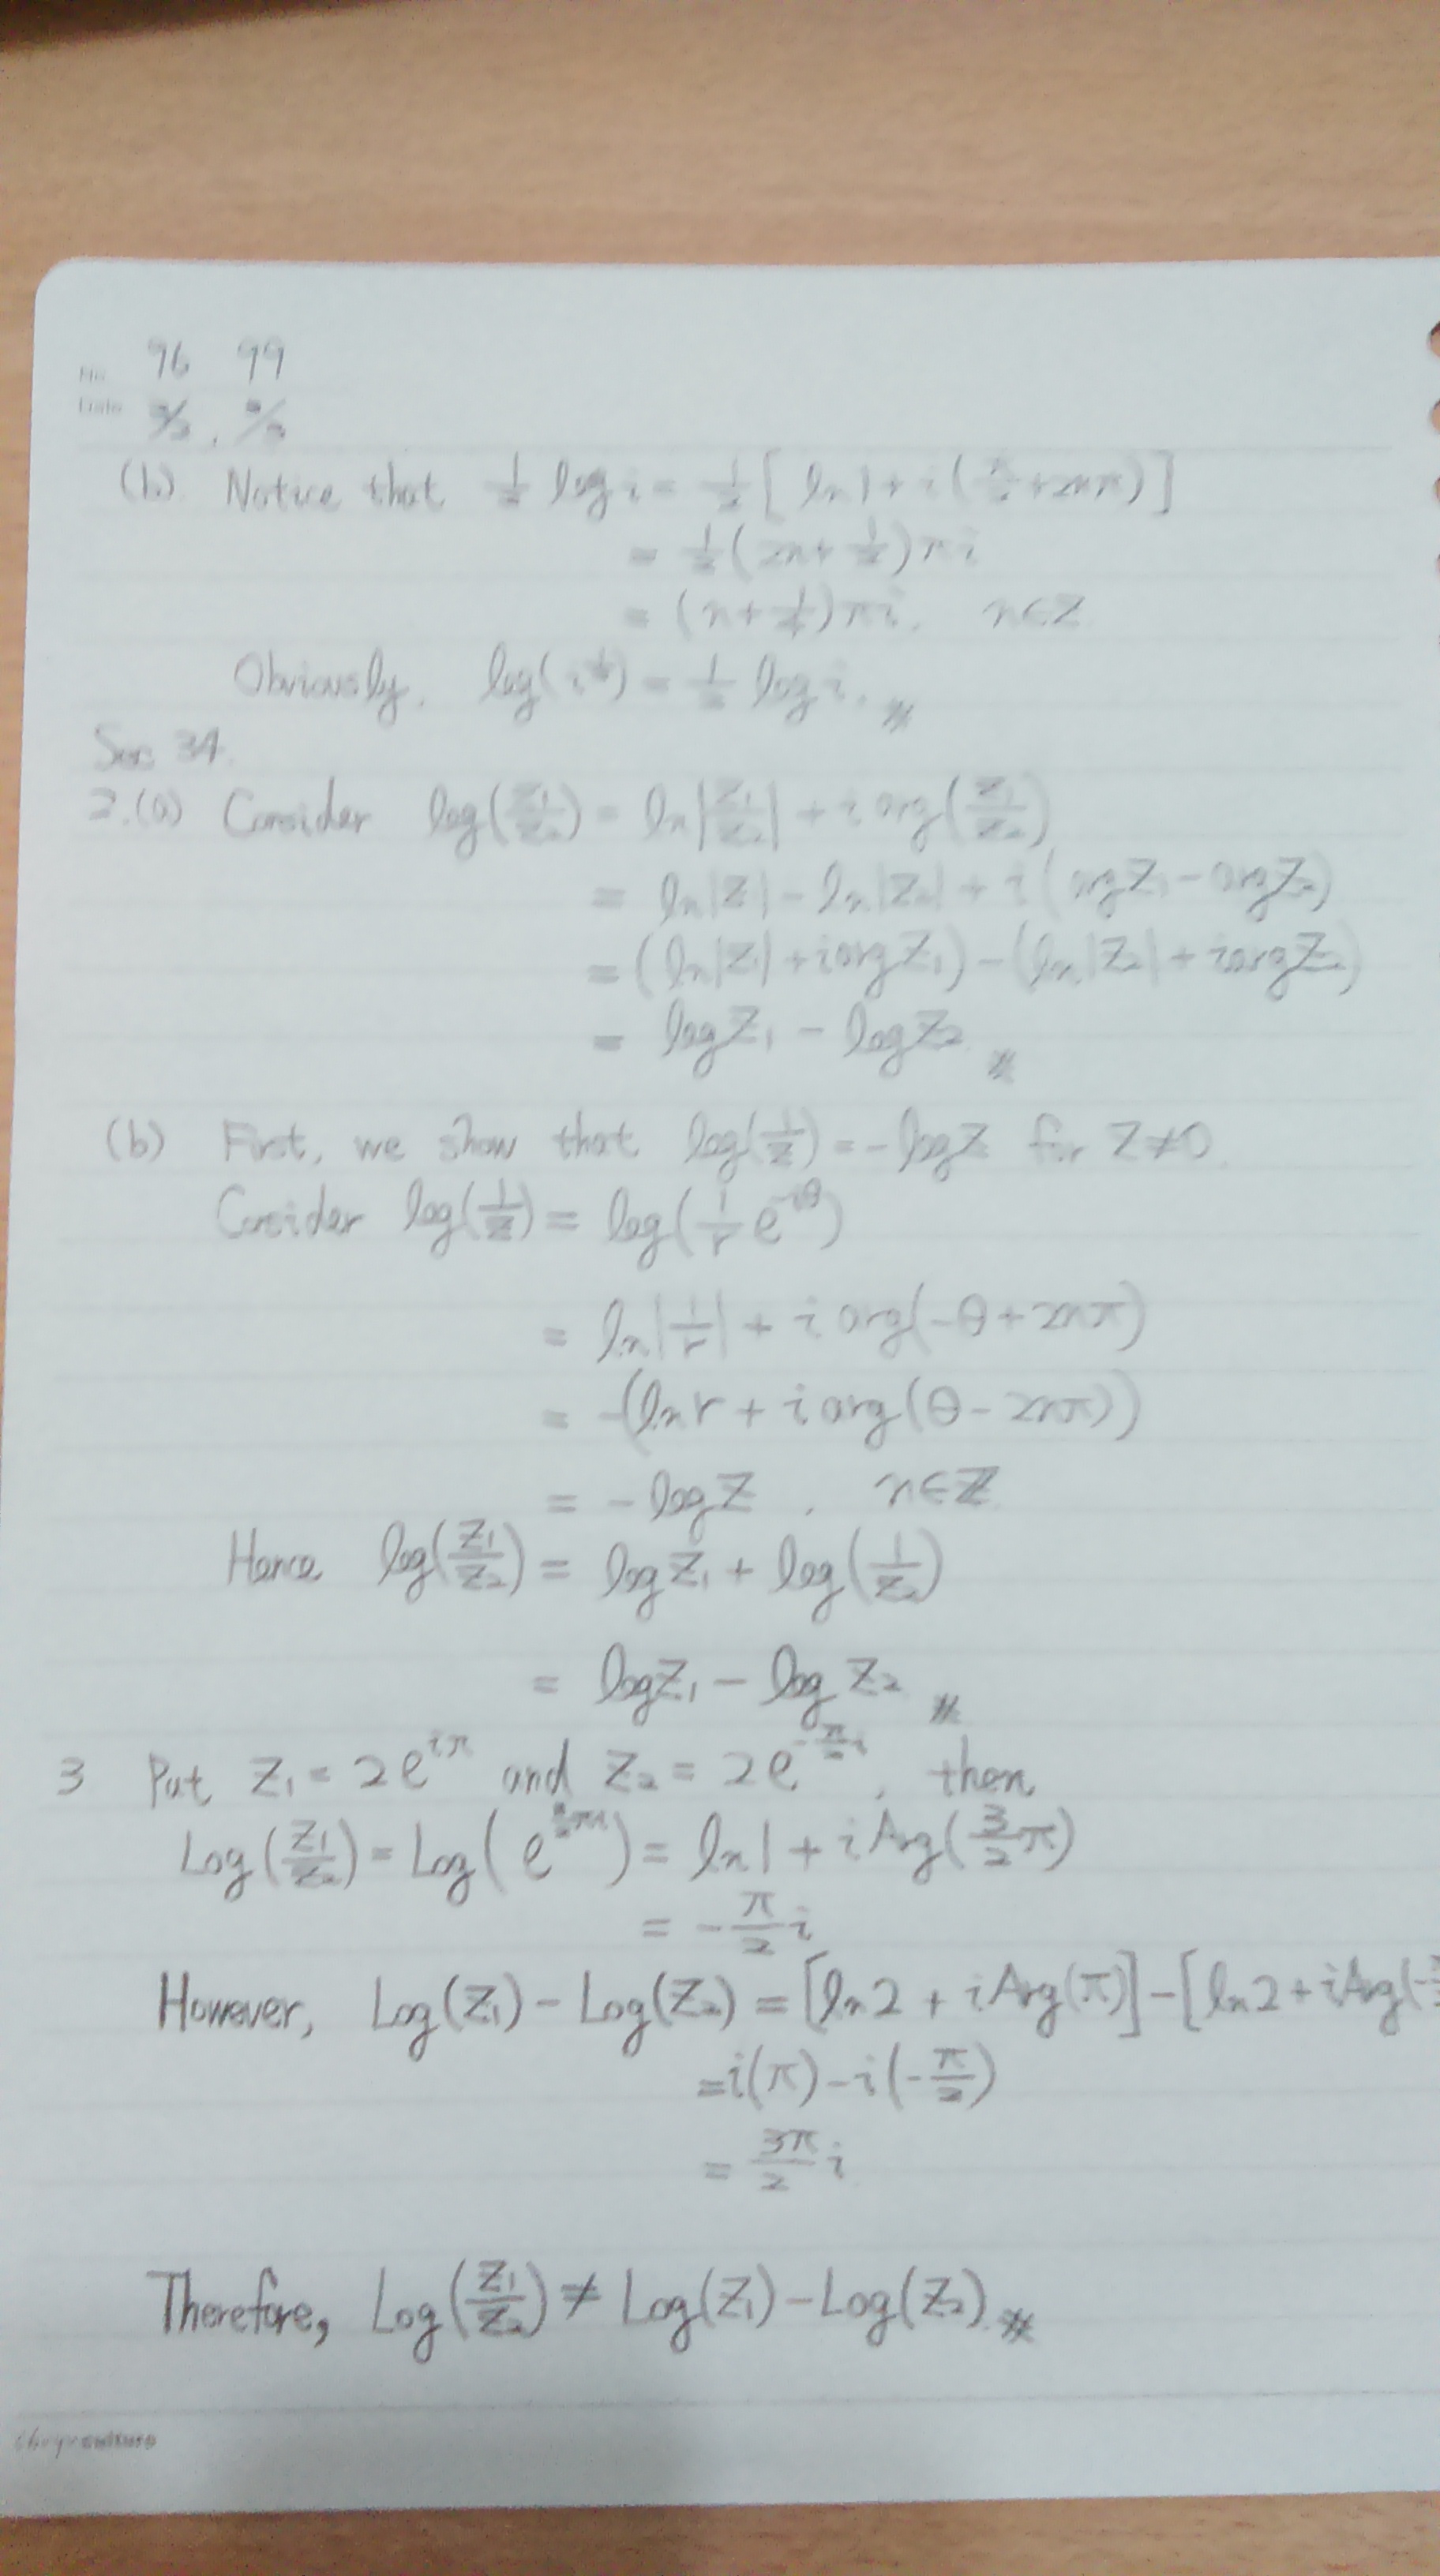 No. 96 99
Date
(b). Notice that 1/2 log i = 1/2 [ ln 1 + i(π/2 + 2nπ)]
= 1/2 (2n + 1/2)πi
= (n + 1/4)πi, n∈Z.
Obviously, log(i^(1/2)) = 1/2 log i. ※
Sec 34.
2.(a) Consider log(Z₁/Z₂) = ln|Z₁/Z₂| + i arg(Z₁/Z₂)
= ln|Z₁| - ln|Z₂| + i(argZ₁ - argZ₂)
= (ln|Z₁| + i argZ₁) - (ln|Z₂| + i argZ₂)
= logZ₁ - logZ₂ ※
(b) First, we show that log(1/Z) = -logZ for Z≠0.
Consider log(1/Z) = log(1/r e^(-iθ))
= ln|1/r| + i arg(-θ + 2nπ)
= -(ln r + i arg(θ - 2nπ))
= -logZ, n∈Z.
Hence log(Z₁/Z₂) = logZ₁ + log(1/Z₂)
= logZ₁ - logZ₂ ※
3 Put Z₁ = 2e^(iπ) and Z₂ = 2e^(-π/2 i), then
Log(Z₁/Z₂) = Log(e^(3/2 πi)) = ln 1 + i Arg(3/2 π)
= -π/2 i
However, Log(Z₁) - Log(Z₂) = [ln2 + i Arg(π)] - [ln2 + i Arg(-
= i(π) - i(-π/2)
= 3π/2 i
Therefore, Log(Z₁/Z₂) ≠ Log(Z₁) - Log(Z₂). ※